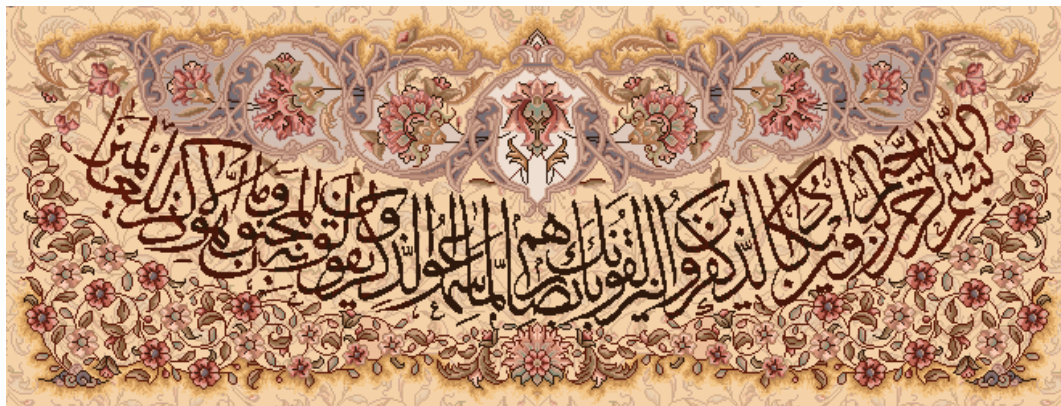 بسم الله الرحمن الرحيم وإن يكاد الذين كفروا ليزلقونك بأبصارهم لما سمعوا الذكر ويقولون إنه لمجنون وما هو إلا ذكر للعالمين